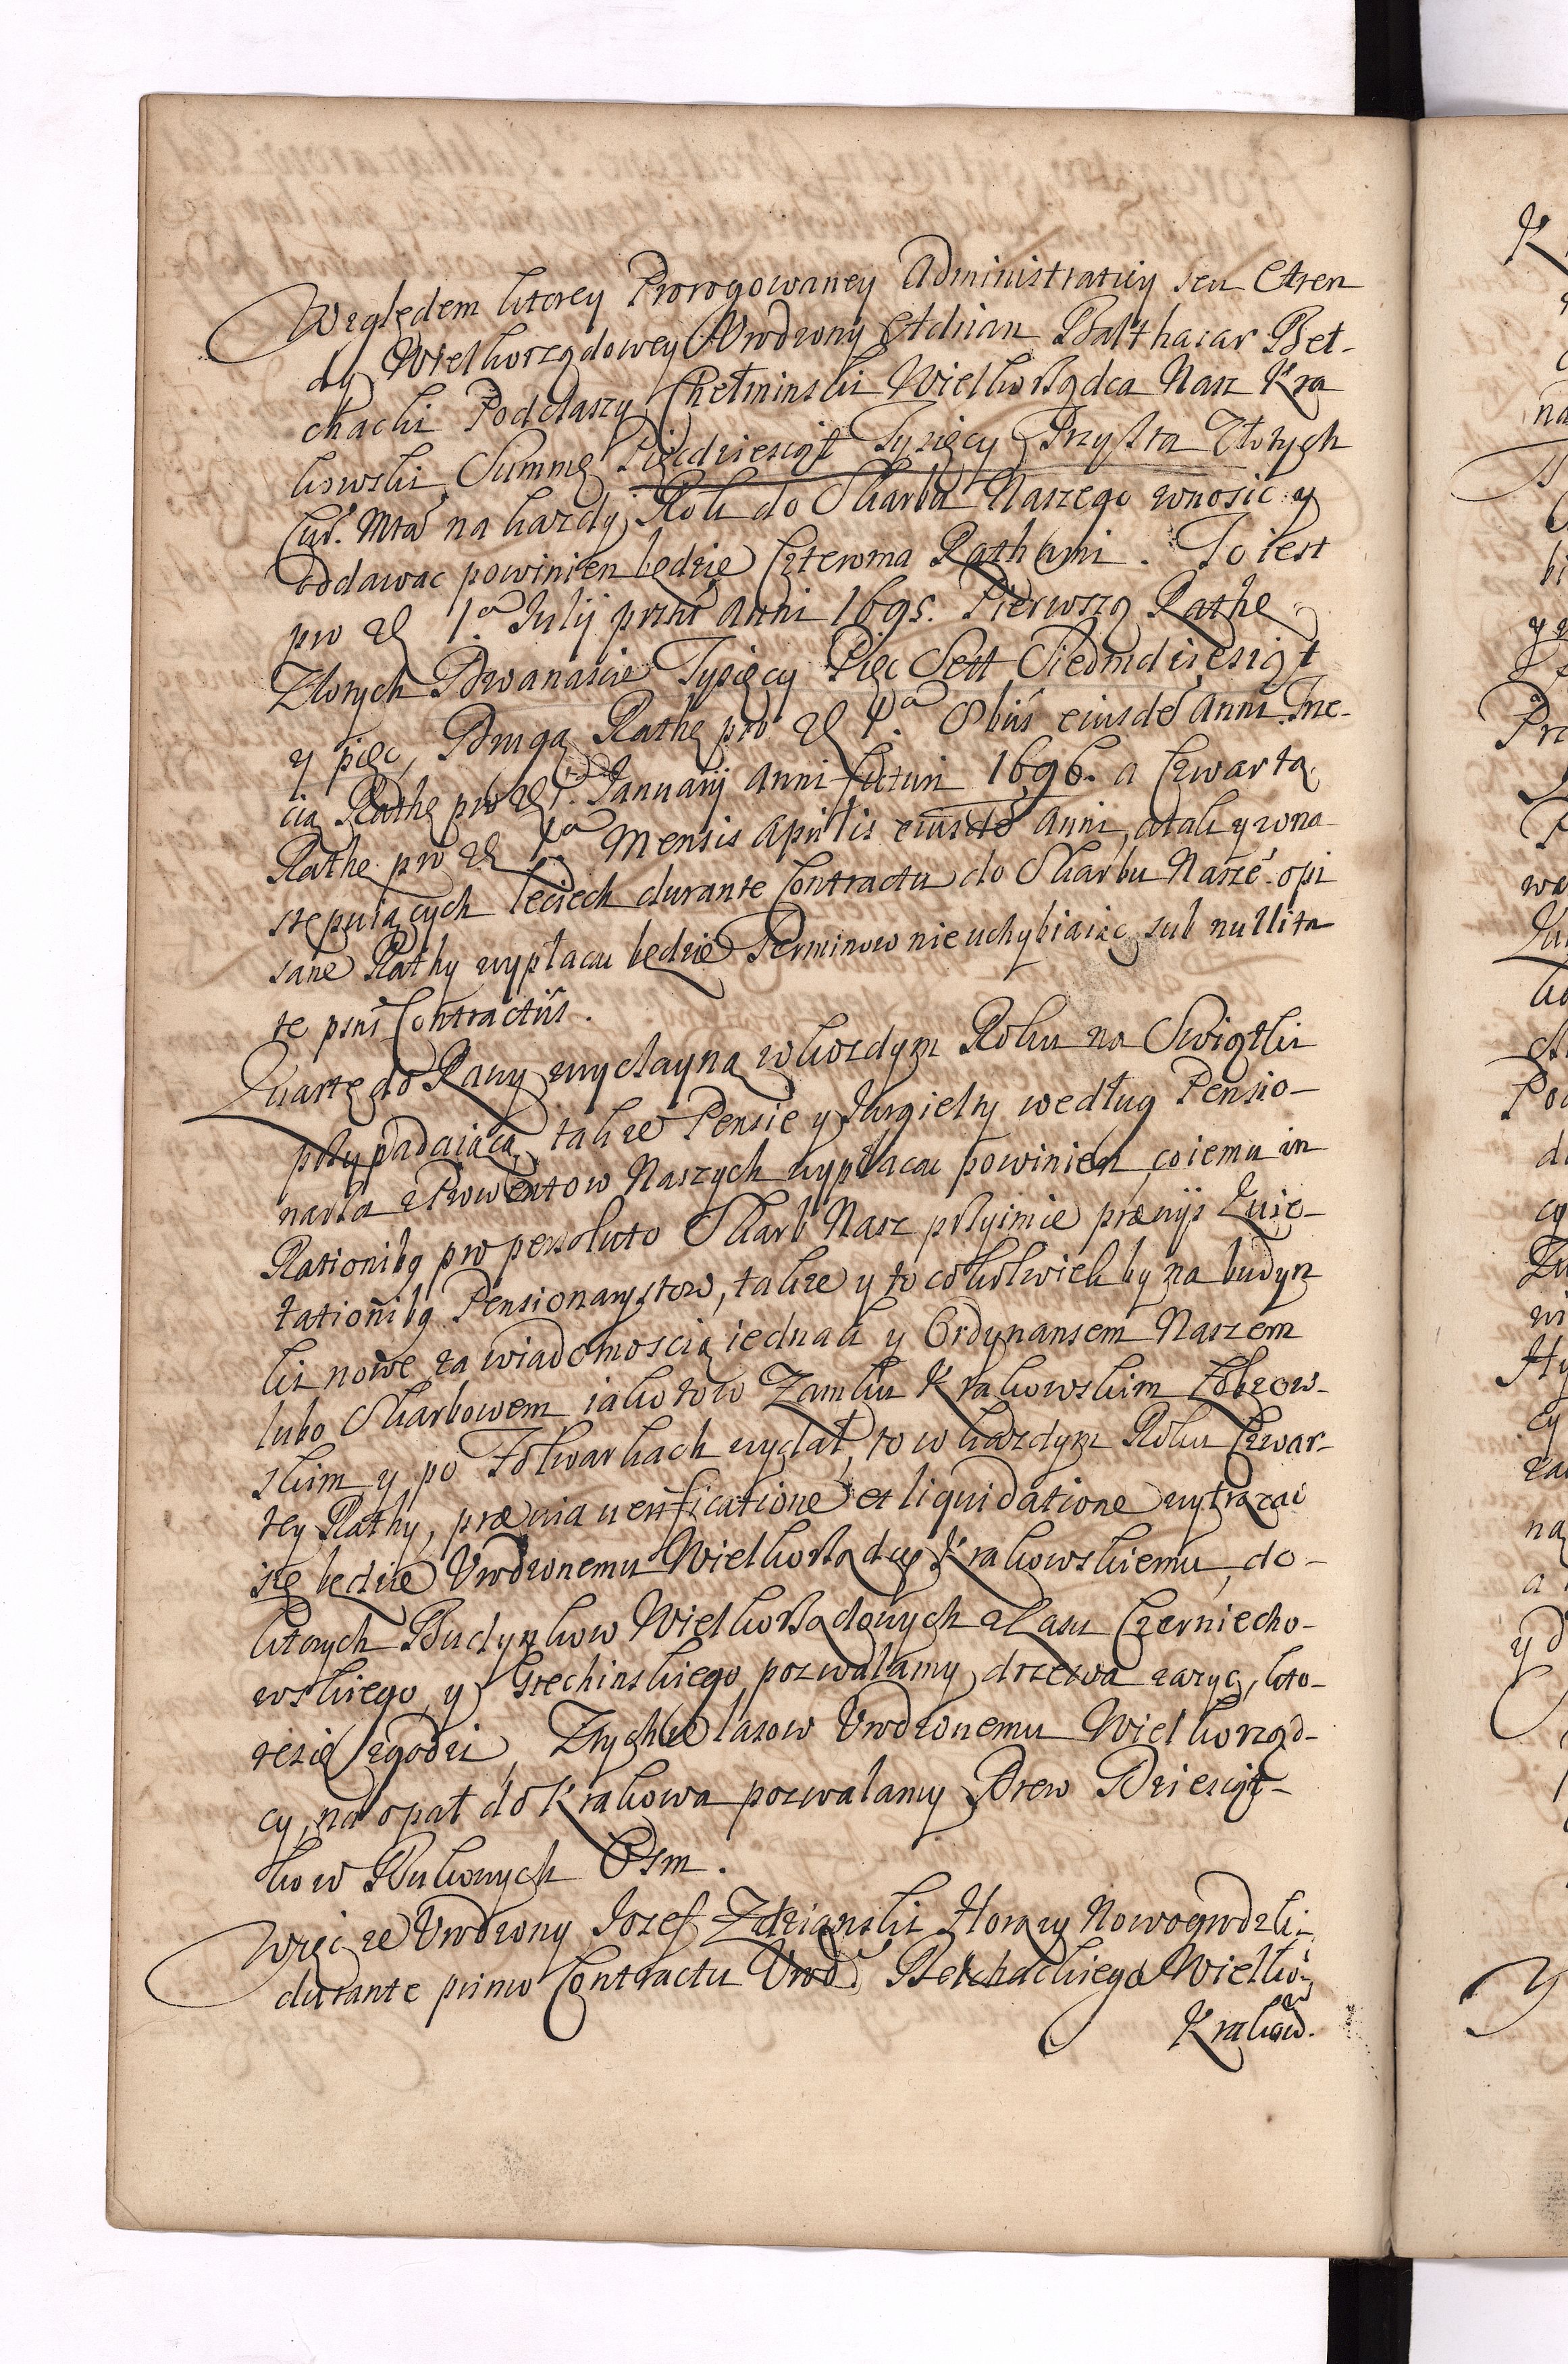 Względem ktorey Prorogowaney Administratiey seu Aren
dy Wielkorządowey Urodzony Adrian Balthazar Beł-
chacki Podczaszy Chełminski Wielkorządca Nasz Kra
kowski, Summę Pięcdziesiąt Tysięcy Trzysta Złotych
Cur. Mta na każdy Rok do Skarbu Naszego wnosic y
oddawac powinien będzie Czterema Rathami. To iest
pro d. 1a Julij prnt Anni 1695. Pierwszą Rathę
Złotych Dwanascie Tysięcy Pięc Sett Siedmdziesiąt
y pięc, Drugą Rathę pro d. 1a 8bris eiusde Anni Trze-
cią Rathę pro d. 1a Januarij Anni futuri 1696. a Czwartą
Rathę pro d. 1a Mensis Aprilis eiusde Anni, a tak y w na
stępuiących leciech durante Contractu do Skarbu Nasze opi
sane Rathy wypłacac będzie Terminow nie uchybiaiąc sub nullita
te prns Contractus.
Quartę do Rawy zwyczayną w kozdym Roku na Swiątki
przypadaiącą, takze Pensie y Jurgielty według Pensio-
narza z Prowentow Naszych wypłacac powinien, co iemu in
Rationibg pro persoluto Skarb Nasz przyimie prævijs Quie-
tationibg Pensionarystow, takze y to cokolwiek by na budyn
ki nowe za wiadomoscią iednak y Ordynansem Naszem
lubo Skarbowem iako to w Zamku Krakowskim Łobzow-
skim y po Folwarkach wydał, to w kazdym Roku Czwar-
tey Rathy, prævia verificatione et liquidatione wytrącac
się będzie Urodzonemu Wielkorządcy Krakowskiemu, do-
ktorych Budynkow Wielkorządowych z Lasu Czerniecho-
wskiego y Grechinskiego pozwalamy drzewa zazyc, kto-
re się zgodzi, Z tychze lasow Urodzonemu Wielkorząd-
cy, na opał do Krakowa pozwalamy Drew Dziesiąt-
kow Kulowych Osm.
Więc ze Urodzony Jozef Zdzianski Horązy Nowogrodzki
durante primo Contractu Urod. Bełchackiego Wielko
Krakow.